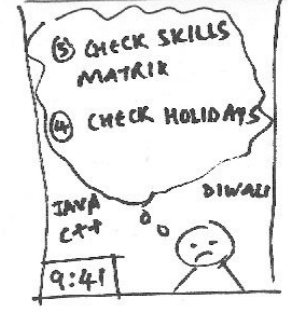 ③ CHECK SKILLS
MATRIX
④ CHECK HOLIDAYS
JAVA
C++
DIWALI
9:41